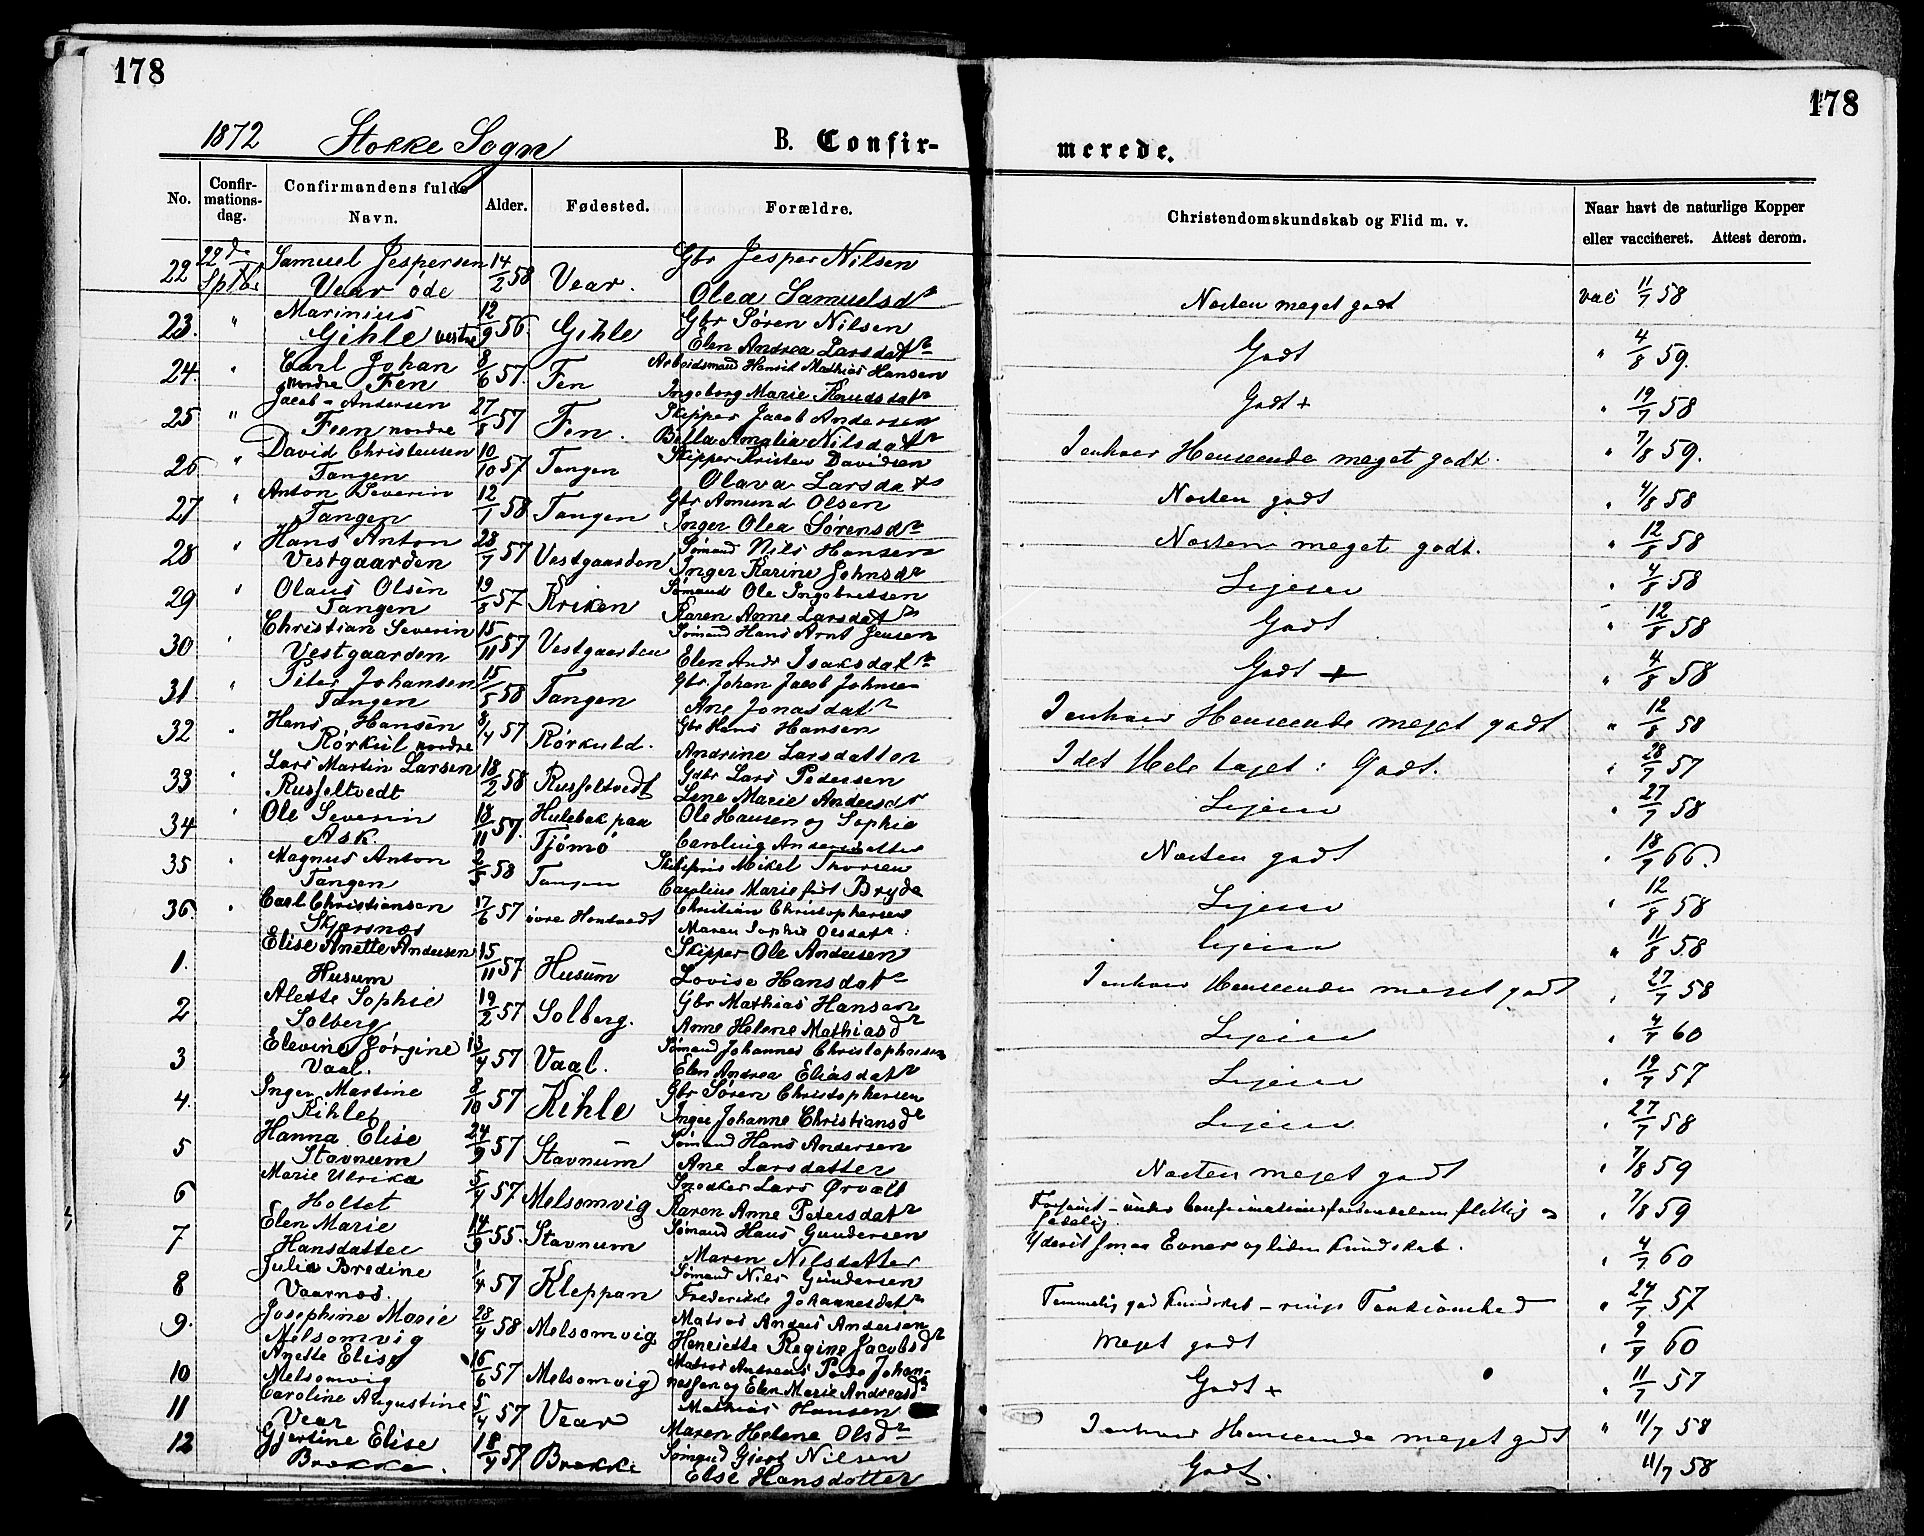 178
178
1872 Stokke Sogn B. Confir-
merede.
No. Confir-mations-dag. Confirmandens fulde Navn. Alder. Fødested. Forældre.
Christendomskundskab og Flid m. v. Naar havt de naturlige Kopper eller vaccineret. Attest derom.
22 22de Samuel Jespersen 14/2 58 Vear. Gbr Jesper Nilsen
Sptbr Vear öde Olea Samuelsdtr
Næsten meget godt vac 11/7 58
23. " Marinius 12/9 56 Gihle Gbr Søren Nilsen
Gihle vestre Elen Andrea Larsdattr
Godt " 4/8 59.
24. " Carl Johan 8/6 57. Fen Arbeidsmand Hans Mathias Hansen
nordre Fen Ingeborg Marie Knudsdatr
Godt + " 19/7 58
25 " Jacob Andersen 27/8 57 Fen. Skipper Jacob Andersen
Feen nordre Bella Amalia Nilsdattr
I enhver Henseende meget godt. " 7/8 59.
26 " David Christensen 10/10 57 Tangen Skipper Kristen Davidsen
Tangen Olava Larsdatr
Næsten godt " 4/8 58
27 " Anton Severin 12/1 58 Tangen Gbr Amund Olsen
Tangen Inger Olea Sørensdtr
Næsten meget godt. " 12/8 58
28 " Hans Anton 28/7 57 Vestgaarden Sømand Nils Hansen
Vestgaarden Inger Karine Johnsdr
Ligesaa " 4/8 58
29 " Olaus Olsen 19/8 57 Kriken Sømand Ole Ingebretsen
Tangen Karen Anne Larsdattr
Godt " 12/8 58
30 " Christian Severin 15/11 57 Vestgaarden Sømand Hans Arnt Jensen
Vestgaarden Elen Andr Isaksdattr
Godt + " 4/8 58
31. " Peter Johansen 15/5 58 Tangen Gbr. Johan Jacob Johnsen
Tangen Ane Jonasdattr
I enhver Henseende meget godt " 12/8 58
32 " Hans Hansen 8/4 57 Rörkuld. Gbr Hans Hansen
Rörkul nordre Andrine Larsdatter
I det Hele taget: Godt. " 28/7 57
33 " Lars Martin Larsen 18/2 58 Russeltvedt Gdbr Lars Pedersen
Russeltvedt Lene Marie Andersdr
Ligesaa " 27/7 58
34 " Ole Severin 18/11 57. Hulebak paa Ole Hansen og Sophie
Ask. Tjömö Caroline Andersdatter
Næsten godt " 18/9 66.
35 " Magnus Anton 2/5 58 Tangen Mikel Thorsen
Tangen Caroline Marie født Bryde
Ligesaa " 12/8 58
36. " Carl Christiansen 17/6 57 övre Hontvedt Christian Christophersen
Skjærsnæs Maren Sophie Olsdatr.
Ligesaa " 11/8 58
1. Elise Anette Andersen 15/11 57 Husum Skipper Ole Andersen
Husum Lovise Hansdatr
I enhver Henseende meget godt " 27/7 58
2 Alette Sophie 19/2 57 Solberg. Gbr Mathias Hansen
Solberg Anne Helene Mathiasdr
Ligesaa " 4/7 60
3 Elevine Jörgine 13/4 57 Vaal. Sømand Johannes Christophersen
Vaal. Elen Andrea Eliasdatr
Ligesaa " 19/7 57
4. Inger Martine 8/10 57 Kihle Gbr Sören Christophersen
Kihle Inger Johanne Christiansdr
Ligesaa " 27/7 58
5 Hanna Elise 24/9 57 Stavnum Sømand Hans Andersen
Stavnum Ane Larsdatter
Næsten meget godt " 7/8 59
6 Marie Ulrika 5/4 57 Melsomvig Snedker Lars Ørvalt
Holtet Karen Anne Petersdatr
Forsømt - under Confirmationsforberedelsen flittig og sædelig. " 7/8 59
7 Elen Marie 14/9 55. Stavnum Sømand Hans Gundersen
Hansdatter Maren Nilsdatter
Yderst smaa Evner og liden Kundskab. " 4/7 60
8 Julia Bredine 1/4 57 Kleppan Sømand Nils Gundersen
Vaarnes. Frederikke Johannesdatr
Temmelig god Kundskab - ringe Tænksomhed " 24/7 57
9. Josephine Marie 28/4 58 Melsomvig Matros Anders Andersen
Melsomvig Henriette Regine Jacobsdr
Meget godt " 9/7 60
10 Anette Elise 16/6 57 Melsomvig Matros Andreas Peder Johan-
Melsomvig nessen og Elen Marie Andreasdtr
Godt + " 11/7 57
11 Caroline Augustine 5/4 57 Vear Mathias Hansen
Vear Maren Helene Olsdtr
I enhver Henseende meget godt " 11/7 58
12 Gjertine Elise 18/4 57 Brekke Sømand Gjert Nilsen
Brekke. Else Hansdatter
Godt. 11/7 58